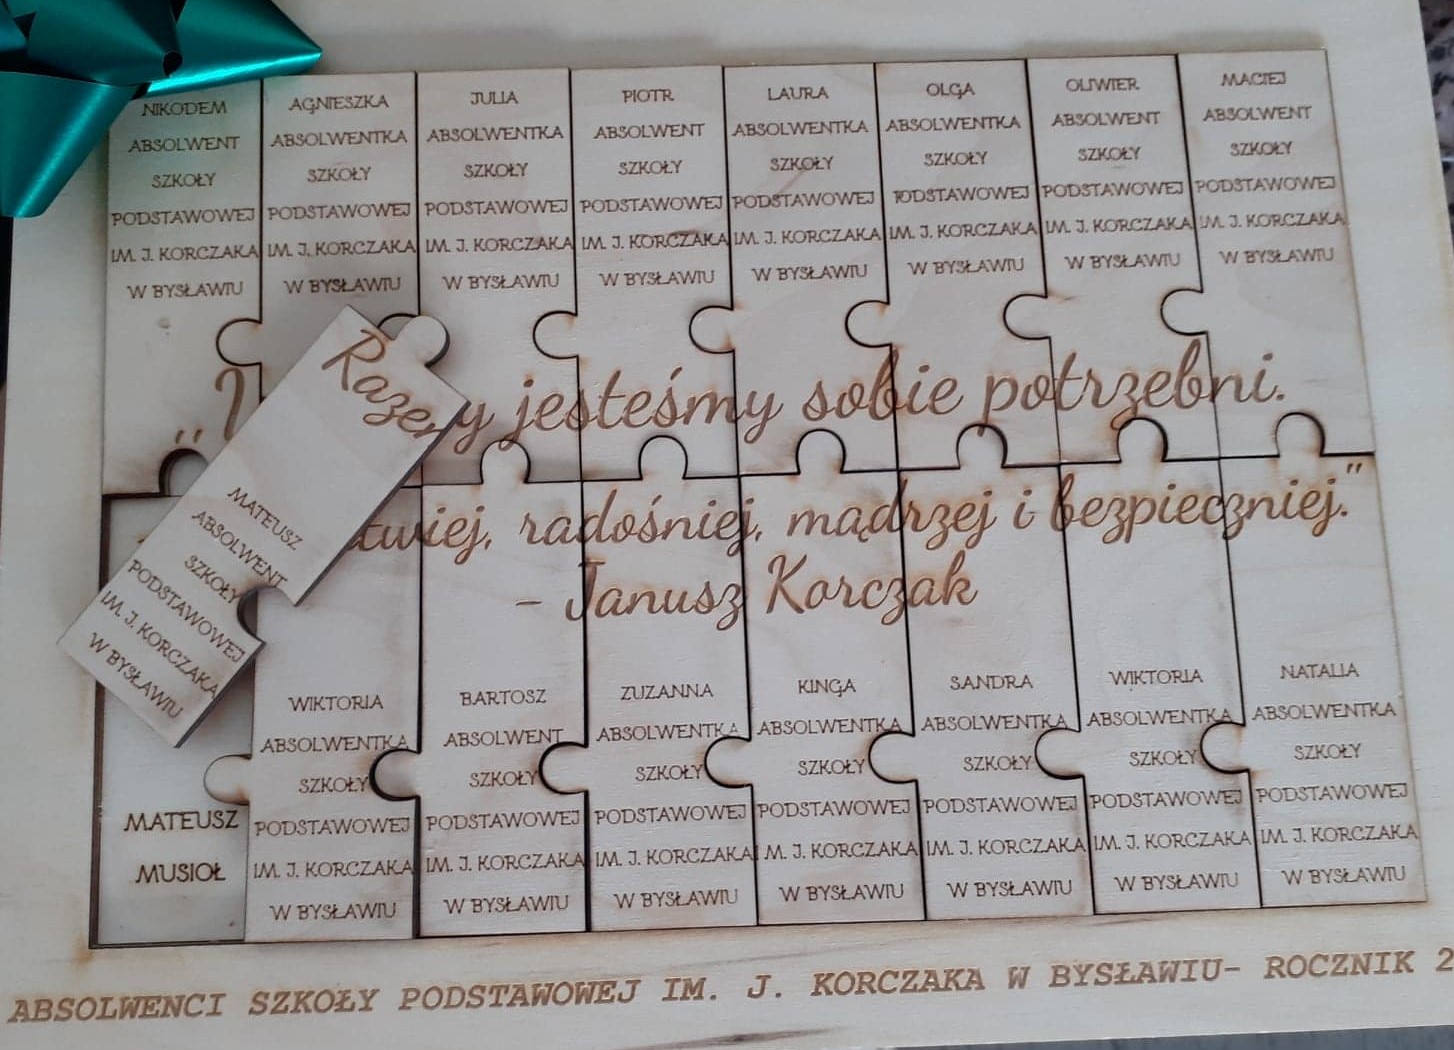 NIKODEM
ABSOLWENT
SZKOŁY
PODSTAWOWEJ
IM. J. KORCZAKA
W BYSŁAWIU
AGNIESZKA
ABSOLWENTKA
SZKOŁY
PODSTAWOWEJ
IM. J. KORCZAKA
W BYSŁAWIU
JULIA
ABSOLWENTKA
SZKOŁY
PODSTAWOWEJ
IM. J. KORCZAKA
W BYSŁAWIU
PIOTR
ABSOLWENT
SZKOŁY
PODSTAWOWEJ
IM. J. KORCZAKA
W BYSŁAWIU
LAURA
ABSOLWENTKA
SZKOŁY
PODSTAWOWEJ
IM. J. KORCZAKA
W BYSŁAWIU
OLGA
ABSOLWENTKA
SZKOŁY
PODSTAWOWEJ
IM. J. KORCZAKA
W BYSŁAWIU
OLIWIER
ABSOLWENT
SZKOŁY
PODSTAWOWEJ
IM. J. KORCZAKA
W BYSŁAWIU
MACIEJ
ABSOLWENT
SZKOŁY
PODSTAWOWEJ
IM. J. KORCZAKA
W BYSŁAWIU
y jesteśmy sobie potrzebni.
twiej, radośniej, mądrzej i bezpieczniej."
- Janusz Korczak
Razem
MATEUSZ
ABSOLWENT
SZKOŁY
PODSTAWOWEJ
IM. J. KORCZAKA
W BYSŁAWIU
MATEUSZ
MUSIOŁ
WIKTORIA
ABSOLWENTKA
SZKOŁY
PODSTAWOWEJ
IM. J. KORCZAKA
W BYSŁAWIU
BARTOSZ
ABSOLWENT
SZKOŁY
PODSTAWOWEJ
IM. J. KORCZAKA
W BYSŁAWIU
ZUZANNA
ABSOLWENTKA
SZKOŁY
PODSTAWOWEJ
IM. J. KORCZAKA
W BYSŁAWIU
KINGA
ABSOLWENTKA
SZKOŁY
PODSTAWOWEJ
IM. J. KORCZAKA
W BYSŁAWIU
SANDRA
ABSOLWENTKA
SZKOŁY
PODSTAWOWEJ
IM. J. KORCZAKA
W BYSŁAWIU
WIKTORIA
ABSOLWENTKA
SZKOŁY
PODSTAWOWEJ
IM. J. KORCZAKA
W BYSŁAWIU
NATALIA
ABSOLWENTKA
SZKOŁY
PODSTAWOWEJ
IM. J. KORCZAKA
W BYSŁAWIU
ABSOLWENCI SZKOŁY PODSTAWOWEJ IM. J. KORCZAKA W BYSŁAWIU- ROCZNIK 2